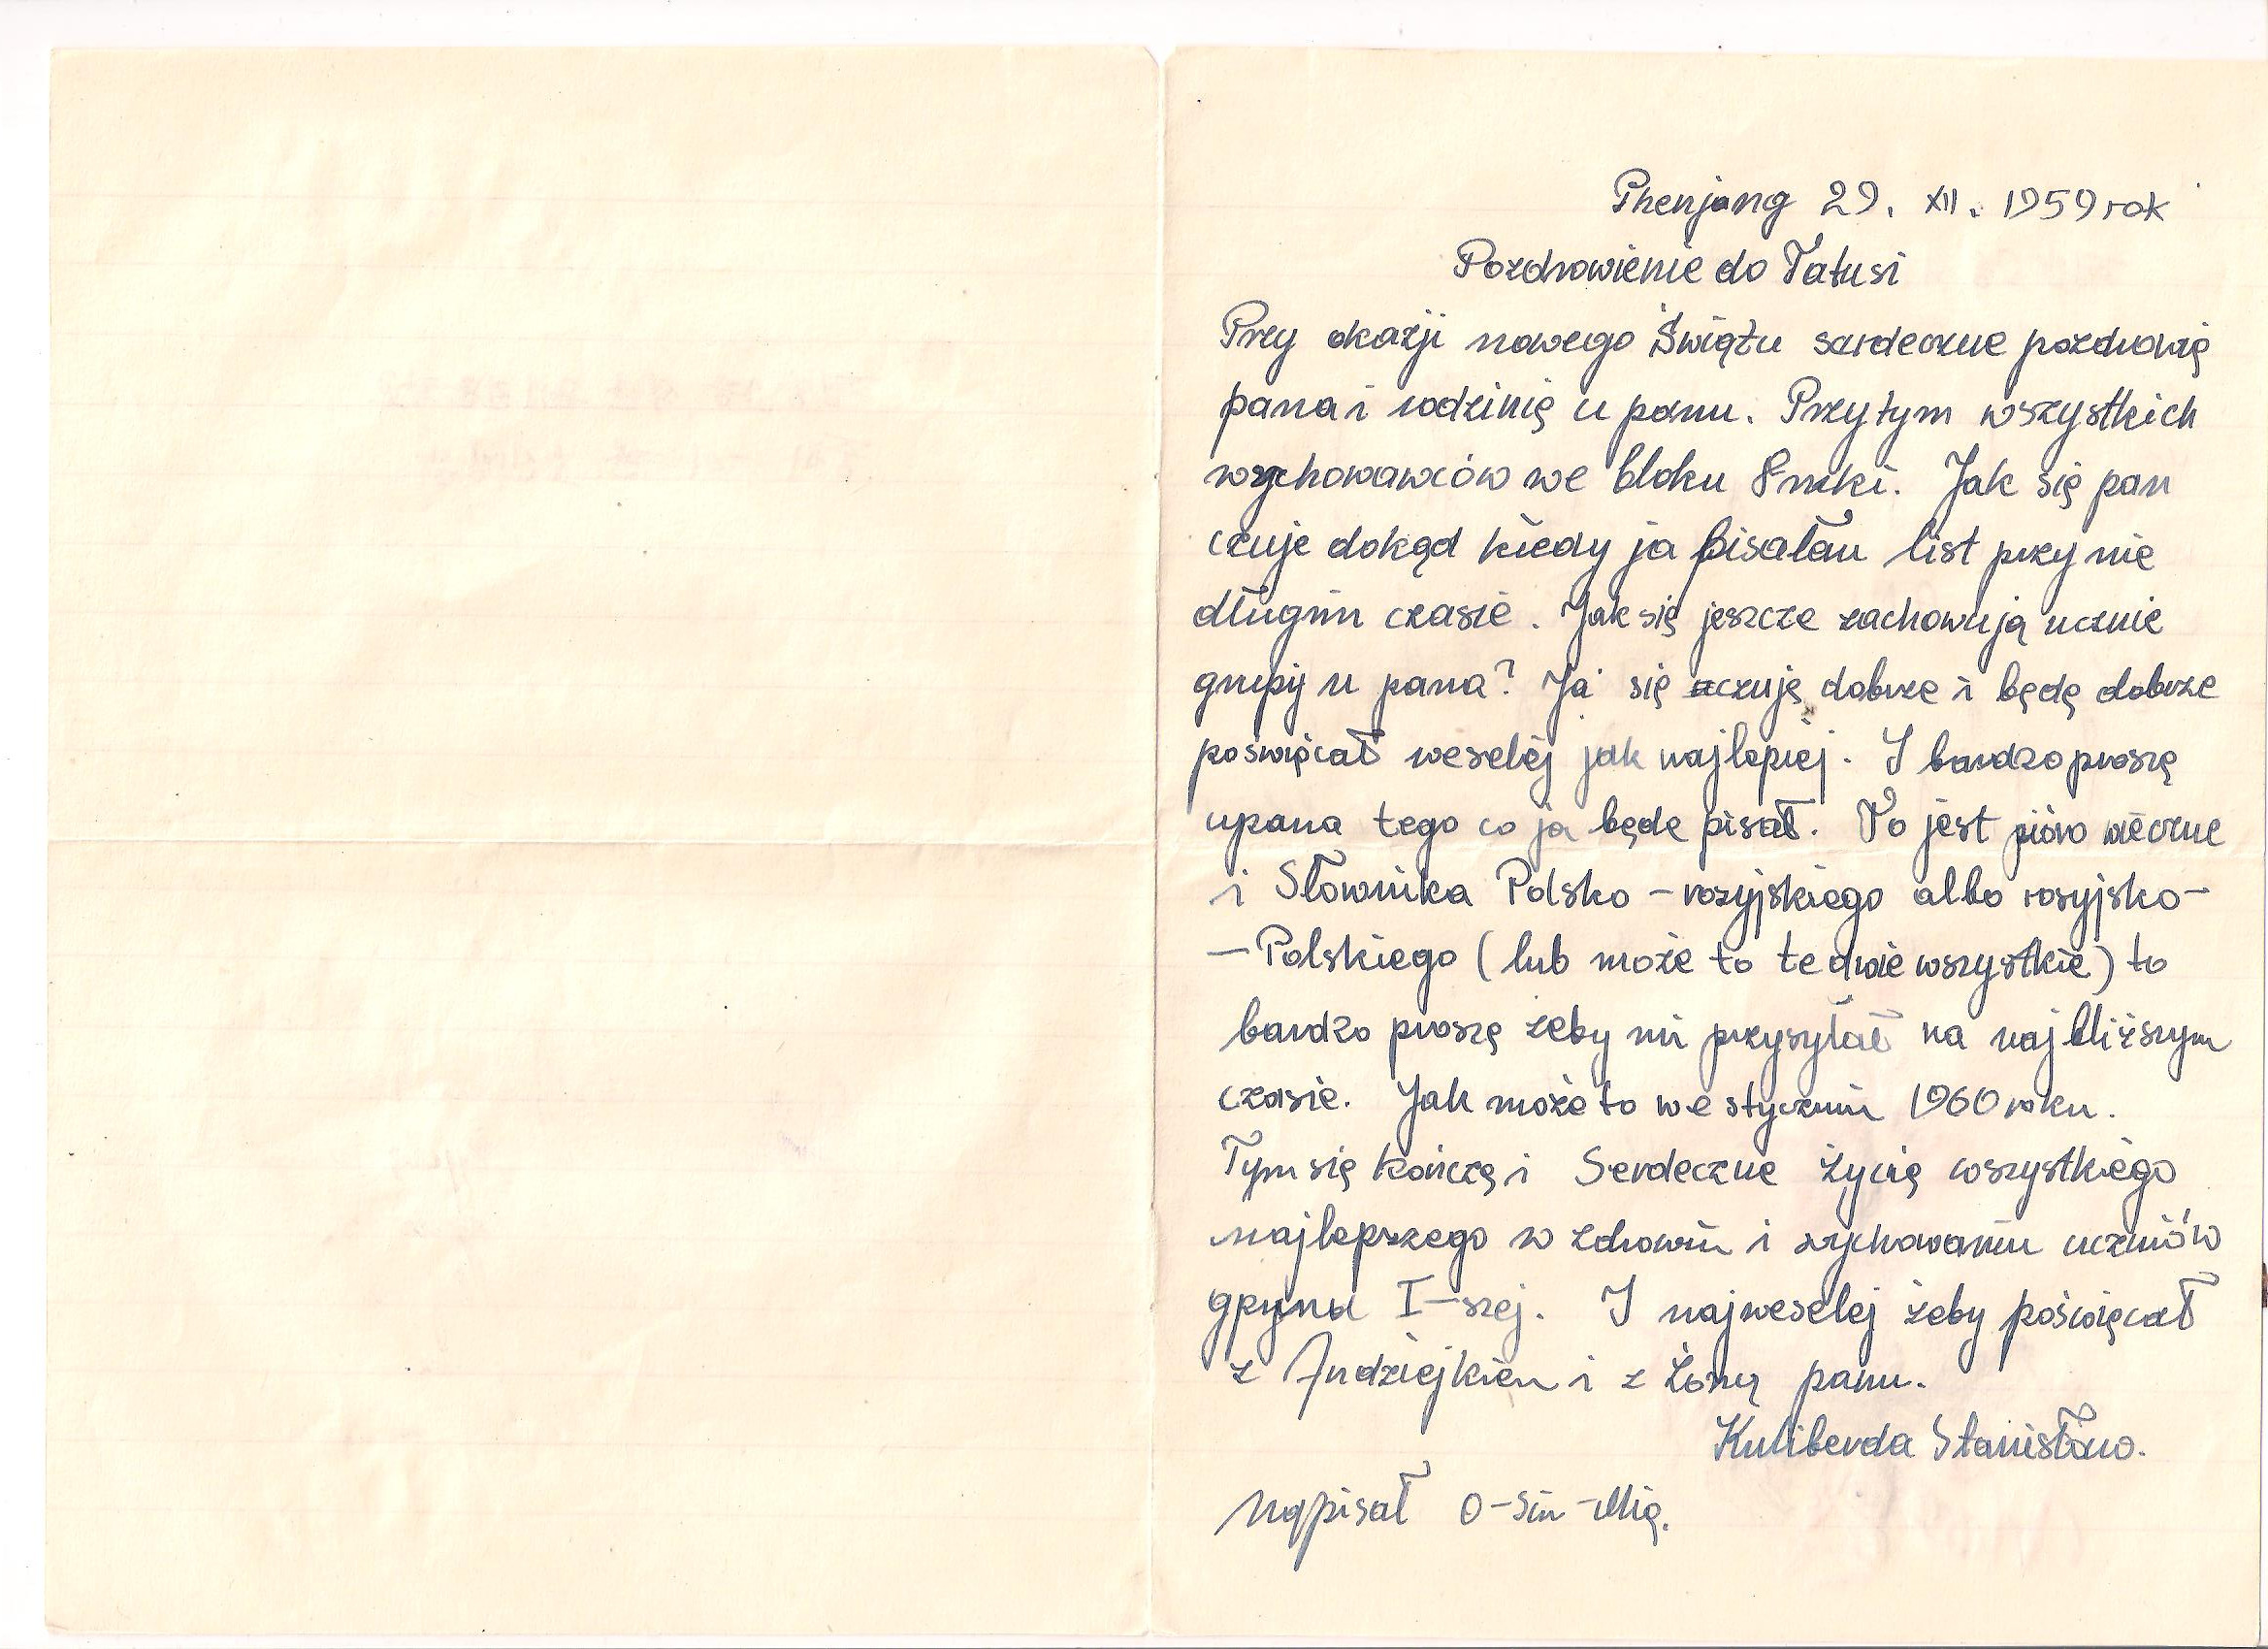 Phenjang 29. XII. 1959 rok
Pozdrowienie do Tatusi
Przy okazji nowego Świątu serdeczne pozdrowię
pana i rodzinię u panu. Przytym wszystkich
wychowawców we bloku 8
Jak się pan
czuje dokąd kiedy ja pisałau list przy nie
długim czasie. Jak się jeszcze zachowują ucznie
grupij u pana? Ja się czuję dobrze i będę dobrze
poswięcał weselej jak najlepiej. I bardzo proszę
upana tego co ja będe pisał. To jest pióro wieczne
i Słownika Polsko – rozyjskiego albo rosyjsko–
– Polskiego (lub może to te dwie wszystkie) to
bardzo proszę żeby mi przysyłał na najbliższym
czasie. Jak może to we styczniu 1960 roku.
Tym się kończę i Serdeczne życię wszystkiego
najlepszego w zdrowiu i wychowaniu uczniów
I–szej. I najweselej żeby poświęcał
z Andziejkiem i z Żoną panu.
Kuliberda Stanisław.
Napisał O–Sin–Mię.